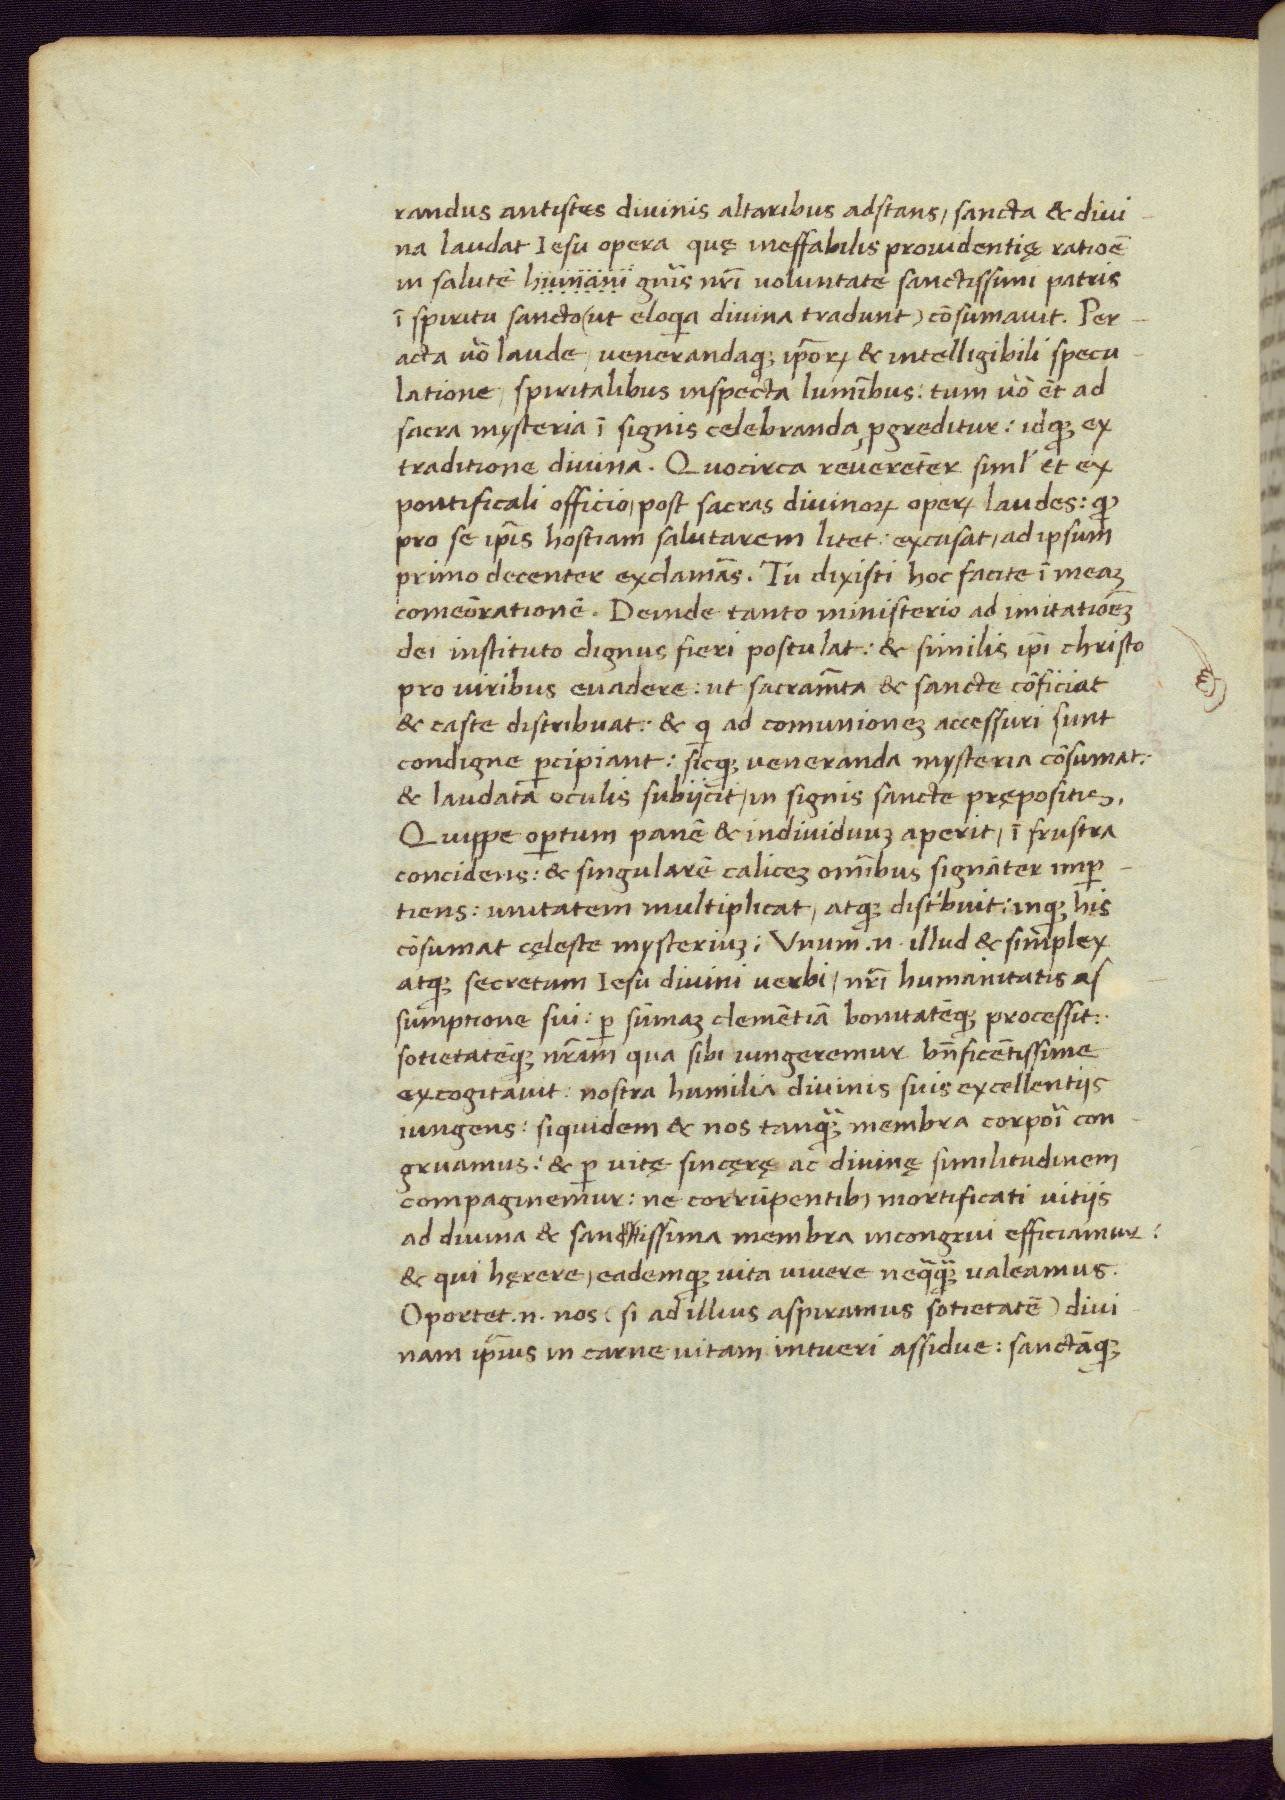 randus antistes divinis altaribus adstans, sancta & divi-
na laudat Iesu opera quę ineffabilis providentię ratioē
in salutē humani gñis nr̄i voluntate sanctissimi patris
ī spiritu sancto (ut eloqa divina tradunt) cōsumavit. Per-
acta ũo laude, venerandaqꝫ ip̄oꝝ & intelligibili specu-
latione, spiritalibus inspecta lumībus: tum ũo ēt ad
sacra mysteria ī signis celebranda ꝓgreditur: idqꝫ ex
traditione divina. Quocirca reverēter siml' et ex
pontificali officio, post sacras divinoꝝ opeꝝ laudes: qꝫ
pro se ip̄is hostiam salutarem litet: excusat, ad ipsum
primo decenter exclamās. Tu dixisti hoc facite ī meaꝫ
comeōrationē. Deinde tanto ministerio ad imitatioēꝫ
dei instituto dignus fieri postulat: & similis ip̄i christo
pro viribus evadere: ut sacram̄ta & sancte cōficiat
& caste distribuat: & q ad comunioneꝫ accessuri sunt
condigne ꝑcipiant: sicqꝫ veneranda mysteria cōsumat:
& laudata oculis subijcit, in signis sancte prępositis,
Quippe oꝑtum panē & individuuꝫ aperit, ī frustra
concidens: & singularē caliceꝫ omībus signāter imꝑ-
tiens: unitatem multiplicat, atqꝫ distibuit: inqꝫ his
cōsumat cęleste mysteriuꝫ; Vnum .n. illud & simplex
atqꝫ secretum Iesu divini verbi, nr̄i humanitatis as
sumptione sui: ꝑ sūmaꝫ clemētiā bonitatēqꝫ processit:
sotietatēqꝫ nr̄am qua sibi iungeremur bn̄ficētissime
excogitavit: nostra humilia divinis suis excellentijs
iungens: siquidem & nos tanqꝫ membra corpoi con-
gruamus: & ꝑ vitę sincęrę ac divinę similitudinem
compaginemur: ne corrūpentibꝫ mortificati vitijs
ad divina & sanctissima membra incongrui efficiamur:
& qui hęrere, eademqꝫ vita vivere neqqꝫ valeamus.
Oportet .n. nos (si ad illius aspiramus sotietatē) divi-
nam ip̄ius in carne vitam intueri assidue: sanctāqꝫ